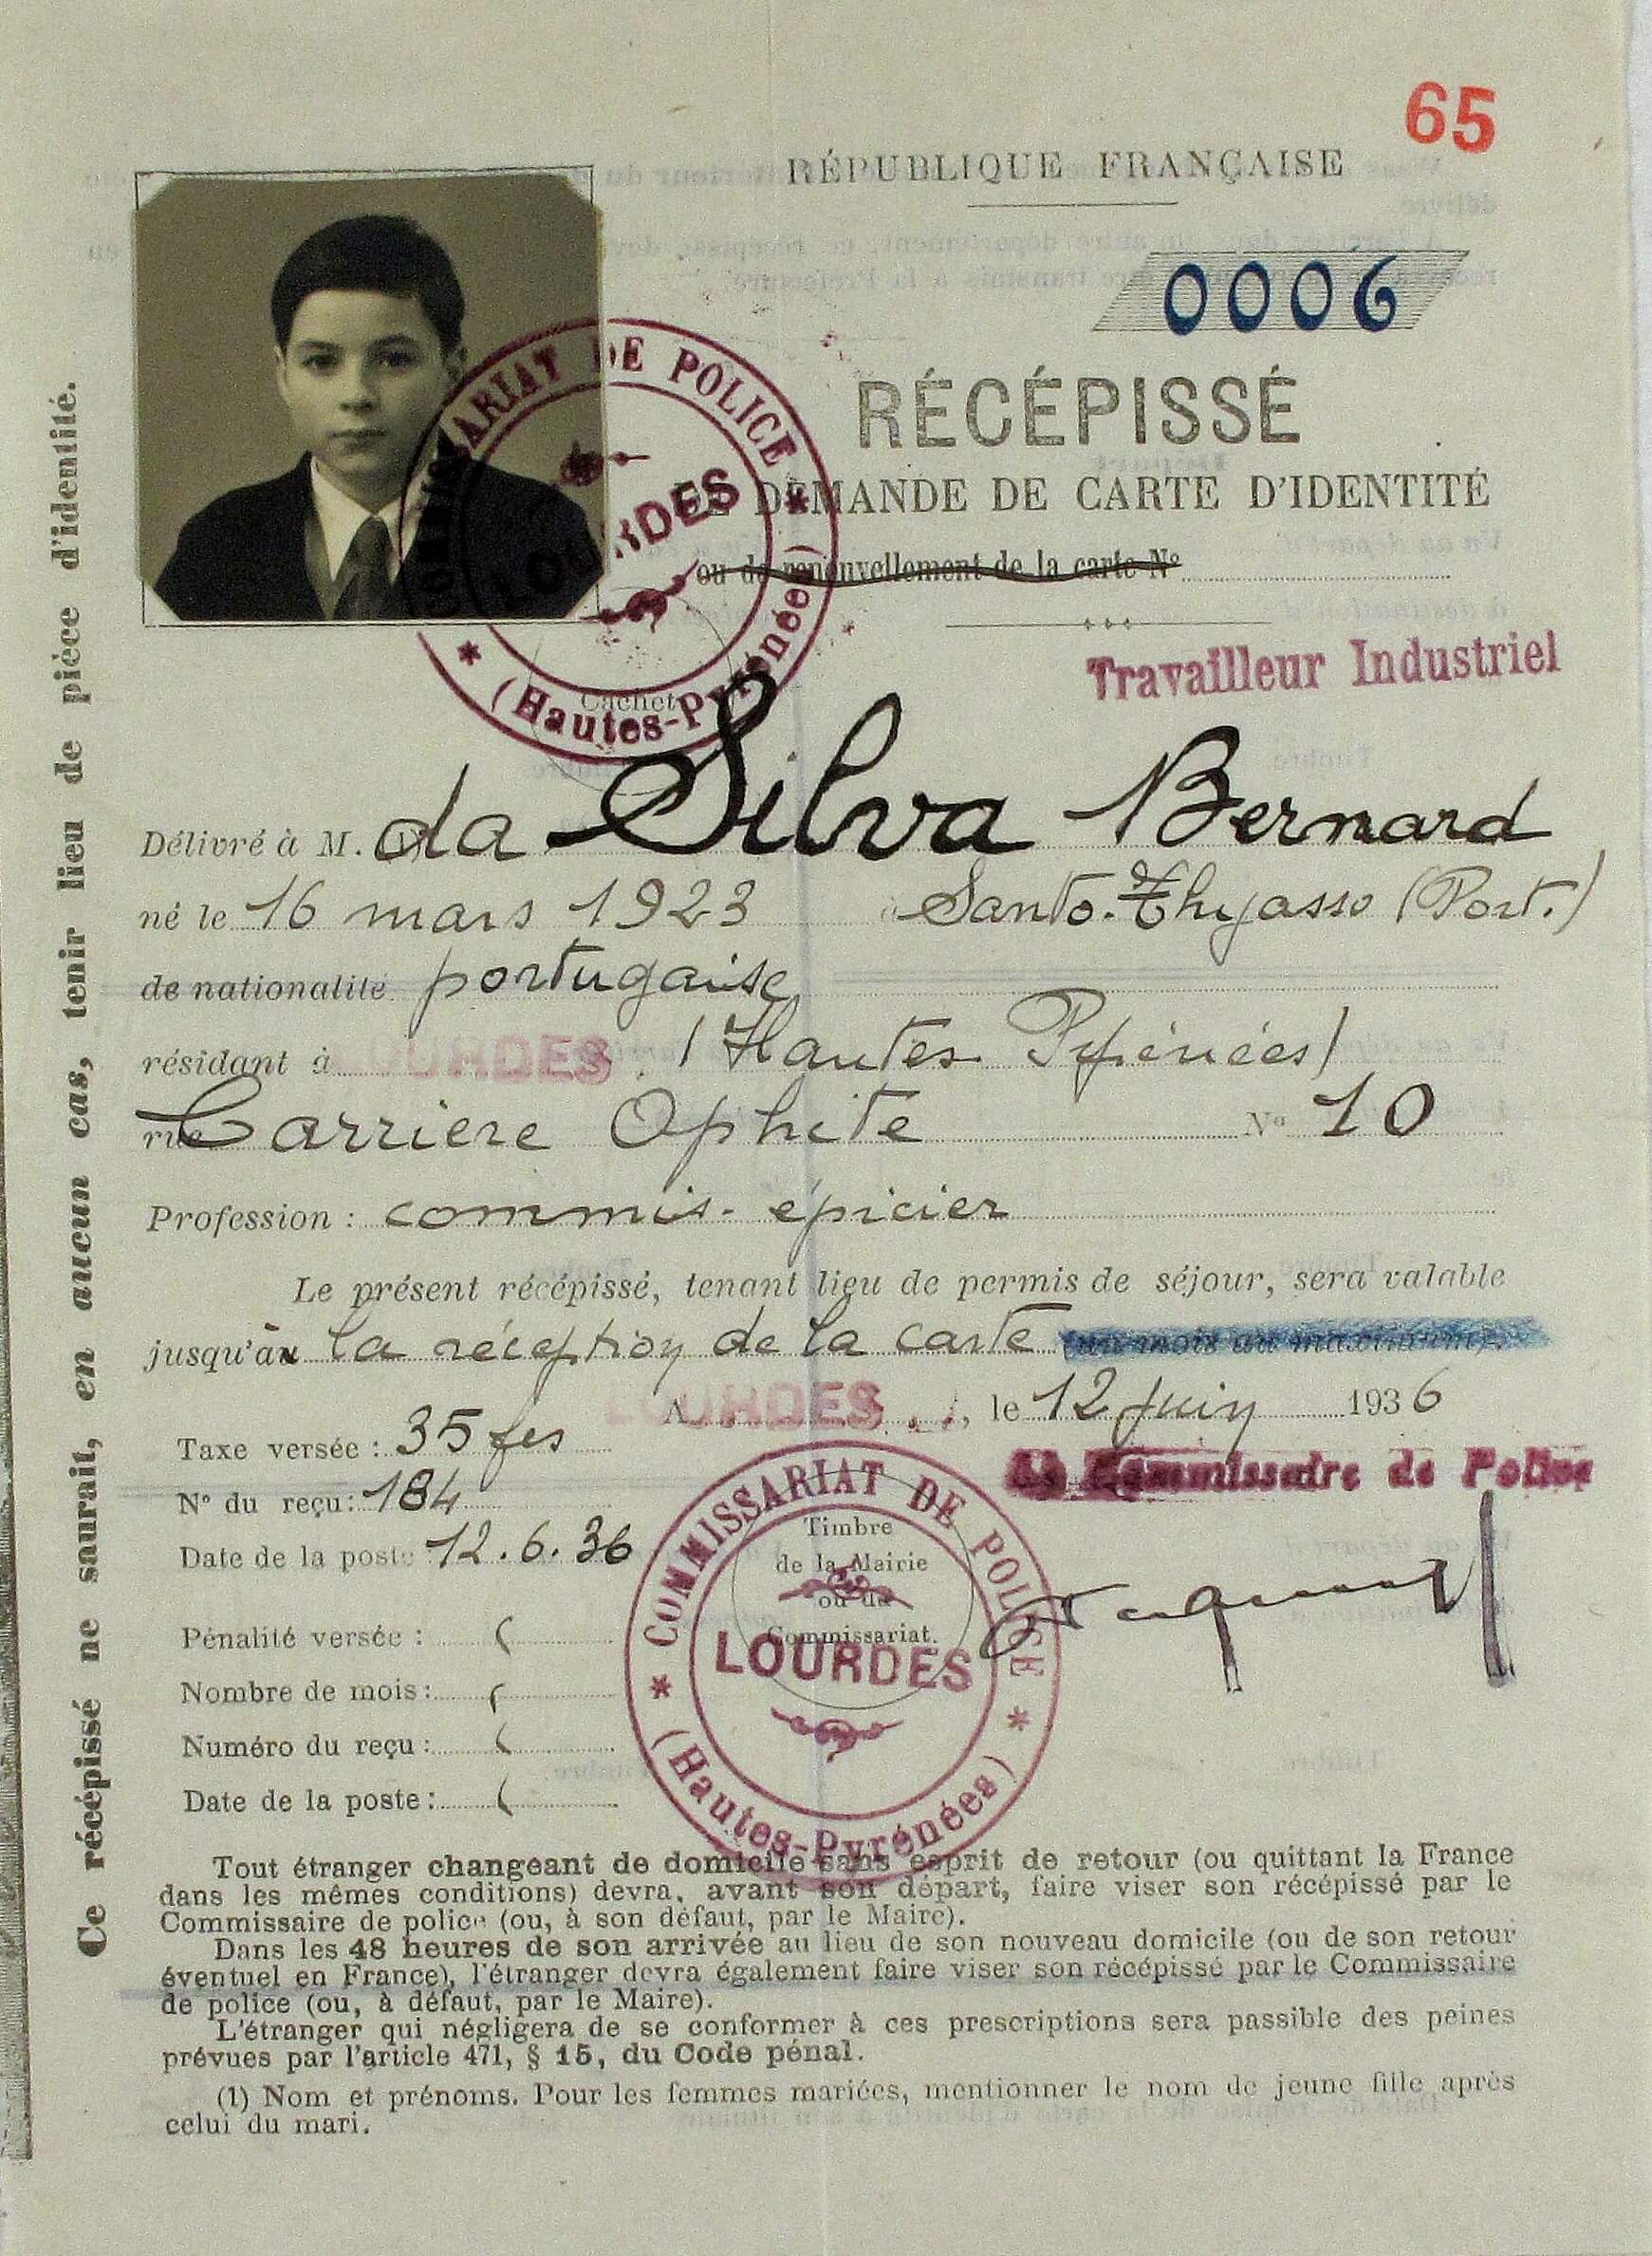 65
RÉPUBLIQUE FRANÇAISE
0006
RÉCÉPISSÉ
DE DEMANDE DE CARTE D'IDENTITÉ
ou de renouvellement de la carte N°
COMMISSARIAT DE POLICE
LOURDES
(Hautes-Pyrénées)
Cachet
Travailleur Industriel
Délivré à M. da Silva Bernard
né le 16 mars 1923 à Santo-Thyasso (Port.)
de nationalité portugaise
résidant à LOURDES (Hautes-Pyrénées)
rue Carriere Ophite N° 10
Profession : commis-épicier
Le présent récépissé, tenant lieu de permis de séjour, sera valable
jusqu'à la réception de la carte un mois au maximum
A LOURDES, le 12 juin 1936
Taxe versée : 35 fcs
Le Commissaire de Police
N° du reçu : 184
Date de la poste : 12.6.36
COMMISSARIAT DE POLICE
Timbre
de la Mairie
ou du
Commissariat.
LOURDES
(Hautes-Pyrénées)
Pénalité versée :
Nombre de mois :
Numéro du reçu :
Date de la poste :
Tout étranger changeant de domicile sans esprit de retour (ou quittant la France
dans les mêmes conditions) devra, avant son départ, faire viser son récépissé par le
Commissaire de police (ou, à son défaut, par le Maire).
Dans les 48 heures de son arrivée au lieu de son nouveau domicile (ou de son retour
éventuel en France), l'étranger devra également faire viser son récépissé par le Commissaire
de police (ou, à défaut, par le Maire).
L'étranger qui négligera de se conformer à ces prescriptions sera passible des peines
prévues par l'article 471, § 15, du Code pénal.
(1) Nom et prénoms. Pour les femmes mariées, mentionner le nom de jeune fille après
celui du mari.
Ce récépissé ne saurait, en aucun cas, tenir lieu de pièce d'identité.